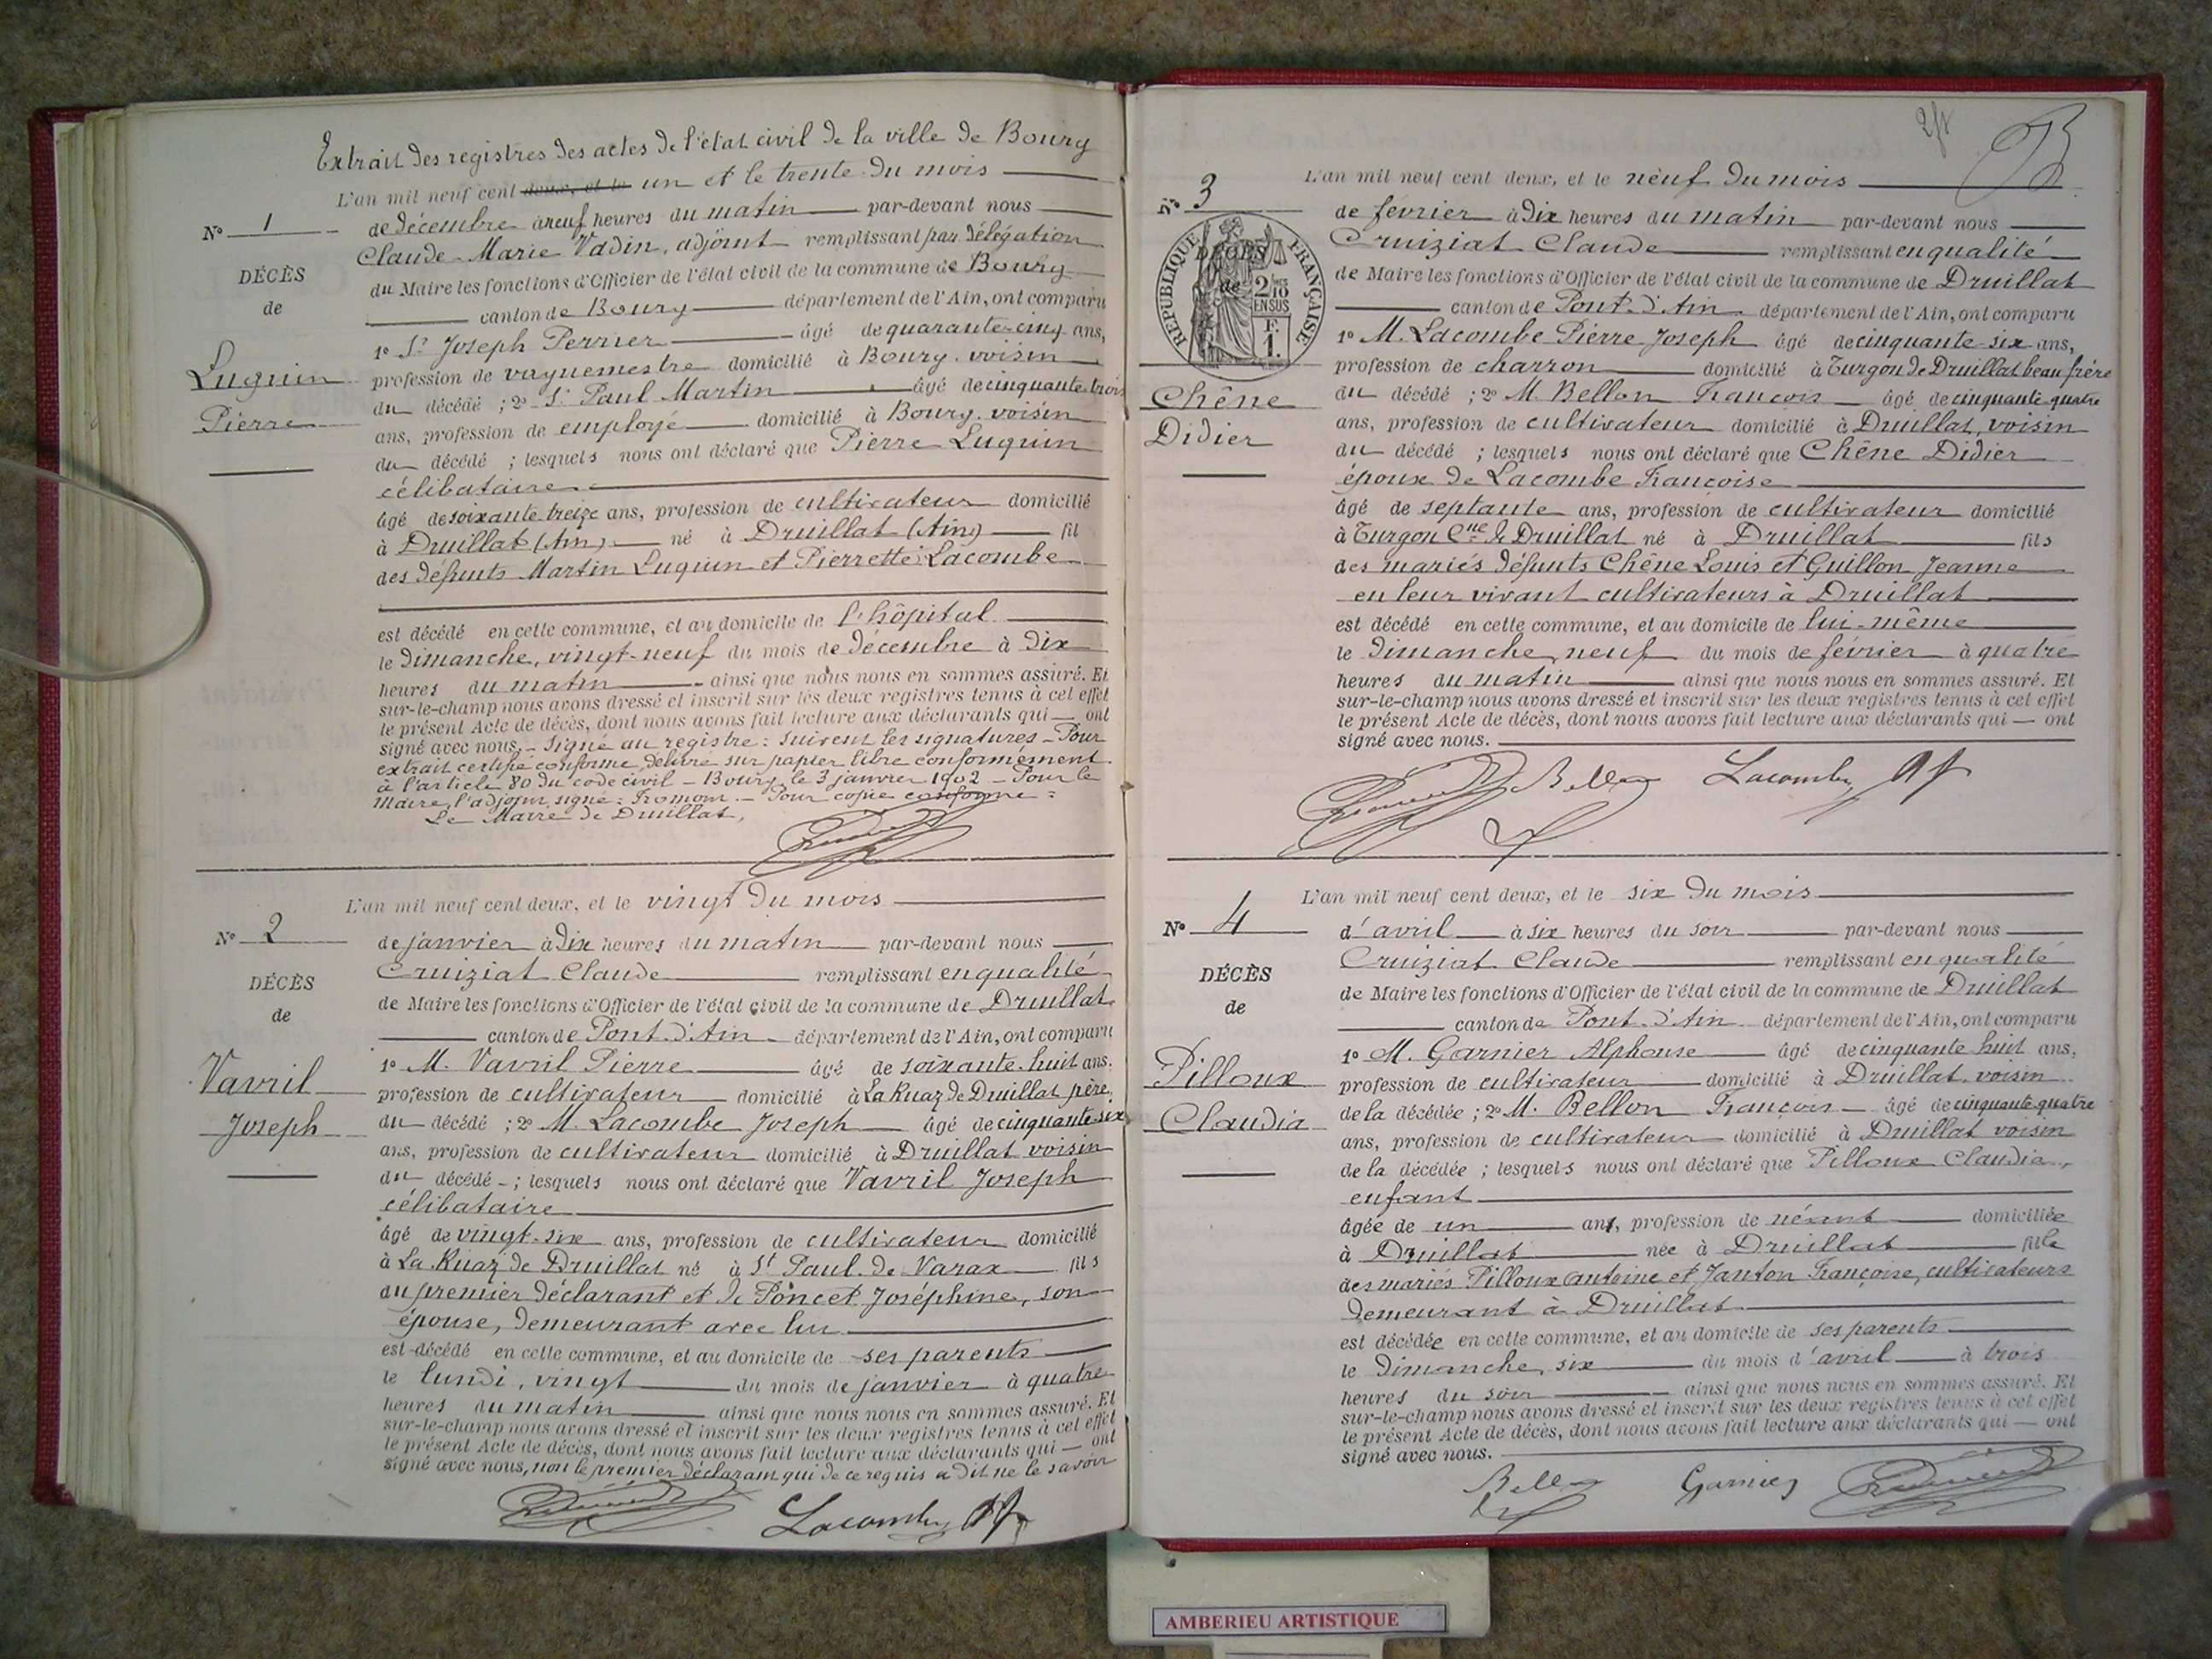 Extrait des registres des actes de l'état civil de la ville de Bourg
L'an mil neuf cent deux, et le un et le trente du mois
N° 1
de décembre à neuf heures du matin par-devant nous
Claude-Marie Vadin, adjoint remplissant par délégation
DÉCÈS
du Maire les fonctions d'Officier de l'état civil de la commune de Bourg
de
canton de Bourg département de l'Ain, ont comparu
1° Sr Joseph Perrier âgé de quarante-cinq ans,
Luguin
profession de vaguemestre domicilié à Bourg, voisin
du décédé ; 2° Sr Paul Martin âgé de cinquante-trois
Pierre
ans, profession de employé domicilié à Bourg, voisin
du décédé ; lesquels nous ont déclaré que Pierre Luguin
célibataire
âgé de soixante-treize ans, profession de cultivateur domicilié
à Druillat (Ain) né à Druillat (Ain) fil
des défunts Martin Luguin et Pierrette Lacombe
est décédé en cette commune, et au domicile de l'hôpital
le dimanche, vingt-neuf du mois de décembre à dix
heures du matin ainsi que nous nous en sommes assuré. Et
sur-le-champ nous avons dressé et inscrit sur les deux registres tenus à cet effet
le présent Acte de décès, dont nous avons fait lecture aux déclarants qui — ont
signé avec nous. - Signé au registre : suivent les signatures - Pour
extrait certifié conforme, délivré sur papier libre conformément
à l'article 80 du code civil - Bourg, le 3 janvier 1902 - Pour le
Maire, l'adjoint, signé : Fromont - Pour copie conforme :
Le Maire de Druillat,
L'an mil neuf cent deux, et le vingt du mois
N° 2
de janvier à dix heures du matin par-devant nous
Cruiziat Claude remplissant en qualité
DÉCÈS
de Maire les fonctions d'Officier de l'état civil de la commune de Druillat
de
canton de Pont-d'Ain département de l'Ain, ont comparu
1° M. Vavril Pierre âgé de soixante-huit ans,
Vavril
profession de cultivateur domicilié à La Ruaz de Druillat père
Joseph
du décédé ; 2° M. Lacombe Joseph âgé de cinquante-six
ans, profession de cultivateur domicilié à Druillat voisin
du décédé - ; lesquels nous ont déclaré que Vavril Joseph
célibataire
âgé de vingt-six ans, profession de cultivateur domicilié
à La Ruaz de Druillat né à St Paul-de-Varax fils
du premier déclarant et de Poncet Joséphine, son
épouse, demeurant avec lui
est décédé en cette commune, et au domicile de ses parents
le lundi, vingt du mois de janvier à quatre
heures du matin ainsi que nous nous en sommes assuré. Et
sur-le-champ nous avons dressé et inscrit sur les deux registres tenus à cet effet
le présent Acte de décès, dont nous avons fait lecture aux déclarants qui — ont
signé avec nous, non le premier déclarant qui de ce requis a dit ne le savoir
Lacombe
L'an mil neuf cent deux, et le neuf du mois
N° 3
de février à dix heures du matin par-devant nous
Cruiziat Claude remplissant en qualité
RÉPUBLIQUE FRANÇAISE
DÉCÈS
de
2/10
EN SUS
F.
1.
de Maire les fonctions d'Officier de l'état civil de la commune de Druillat
canton de Pont-d'Ain département de l'Ain, ont comparu
1° M. Lacombe Pierre Joseph âgé de cinquante-six ans,
profession de charron domicilié à Turgon de Druillat beau frère
Chêne
du décédé ; 2° M. Bellon François âgé de cinquante-quatre
Didier
ans, profession de cultivateur domicilié à Druillat, voisin
du décédé ; lesquels nous ont déclaré que Chêne Didier
époux de Lacombe Françoise
âgé de septante ans, profession de cultivateur domicilié
à Turgon Cne de Druillat né à Druillat fils
des mariés défunts Chêne Louis et Guillon Jeanne
en leur vivant cultivateurs à Druillat
est décédé en cette commune, et au domicile de lui-même
le dimanche, neuf du mois de février à quatre
heures du matin ainsi que nous nous en sommes assuré. Et
sur-le-champ nous avons dressé et inscrit sur les deux registres tenus à cet effet
le présent Acte de décès, dont nous avons fait lecture aux déclarants qui — ont
signé avec nous.
Lacombe
L'an mil neuf cent deux, et le six du mois
N° 4
d'avril à six heures du soir par-devant nous
Cruiziat Claude remplissant en qualité
DÉCÈS
de Maire les fonctions d'Officier de l'état civil de la commune de Druillat
de
canton de Pont-d'Ain département de l'Ain, ont comparu
1° M. Garnier Alphonse âgé de cinquante huit ans,
Pilloux
profession de cultivateur domicilié à Druillat, voisin
Claudia
de la décédée ; 2° M. Bellon François âgé de cinquante-quatre
ans, profession de cultivateur domicilié à Druillat voisin
de la décédée ; lesquels nous ont déclaré que Pilloux Claudia,
enfant
âgée de un an, profession de néant domiciliée
à Druillat née à Druillat fille
des mariés Pilloux Antoine et Janton Françoise, cultivateurs
demeurant à Druillat
est décédée en cette commune, et au domicile de ses parents
le dimanche, six du mois d'avril à trois
heures du soir ainsi que nous nous en sommes assuré. Et
sur-le-champ nous avons dressé et inscrit sur les deux registres tenus à cet effet
le présent Acte de décès, dont nous avons fait lecture aux déclarants qui — ont
signé avec nous.
Garnier
AMBERIEU ARTISTIQUE